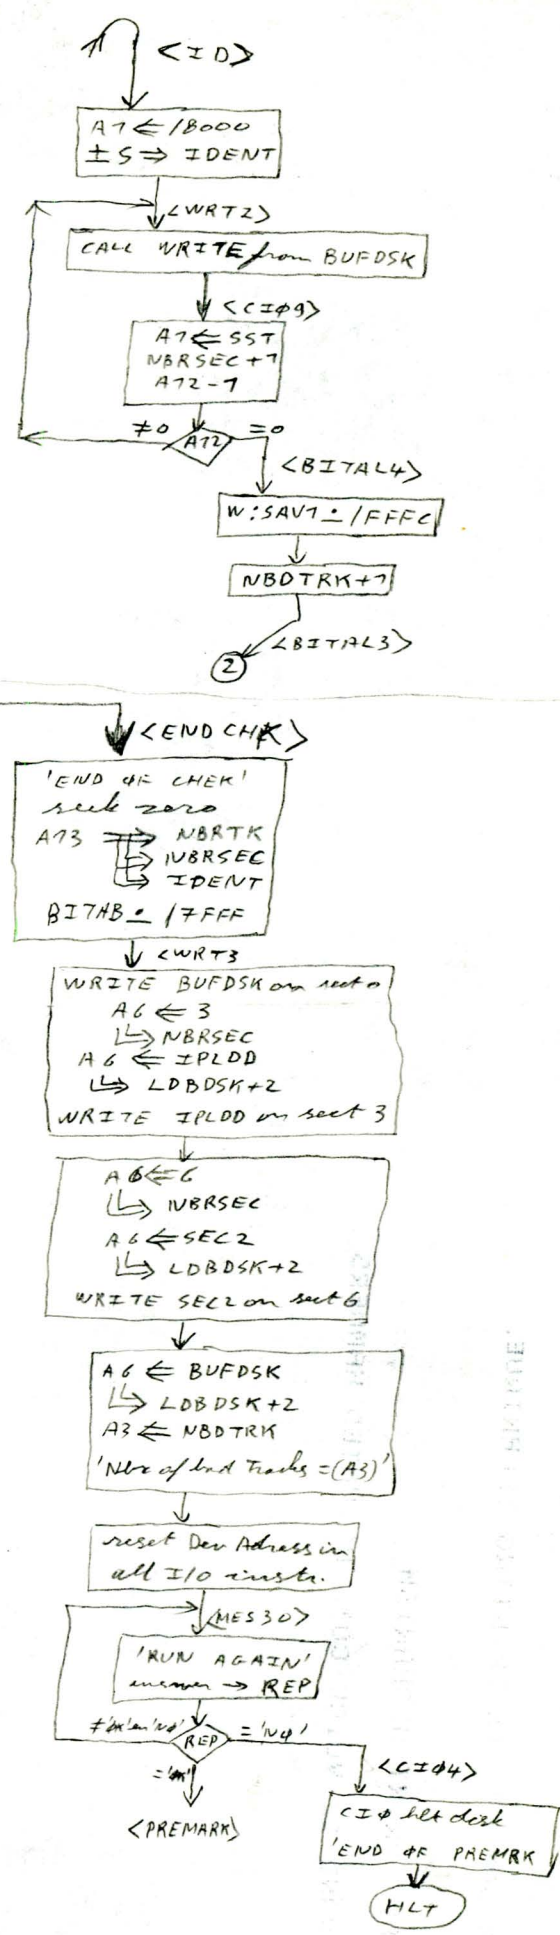 <ID>
A1 ⇐ /8000
± S ⇒ IDENT
<WRT2>
CALL WRITE from BUFDSK
<CIΦ9>
A1 ⇐ SST
NBRSEC+1
A12-1
≠0 A12 =0
<BITAL4>
W:SAV1 ∸ /FFFC
NBDTRK+1
<BITAL3>
2
<END CHK>
'END ΦF CHEK'
seek zero
A13 ⇒ NBRTK
⇒ NBRSEC
⇒ IDENT
BITAB ∸ /7FFF
<WRT3
WRITE BUFDSK on sect 0
A6 ⇐ 3
⇒ NBRSEC
A6 ⇐ IPLDD
⇒ LDBDSK+2
WRITE IPLDD on sect 3
A6 ⇐ 6
⇒ NBRSEC
A6 ⇐ SEC2
⇒ LDBDSK+2
WRITE SEC2 on sect 6
A6 ⇐ BUFDSK
⇒ LDBDSK+2
A3 ⇐ NBDTRK
'Nbr of bad Tracks = (A3)'
reset Dev Adress in
all I/O instr.
<MES30>
'RUN AGAIN'
answer → REP
REP = 'NΦ'
<CIΦ4>
<PREMARK>
CIΦ hlt disk
'END ΦF PREMRK
HLT